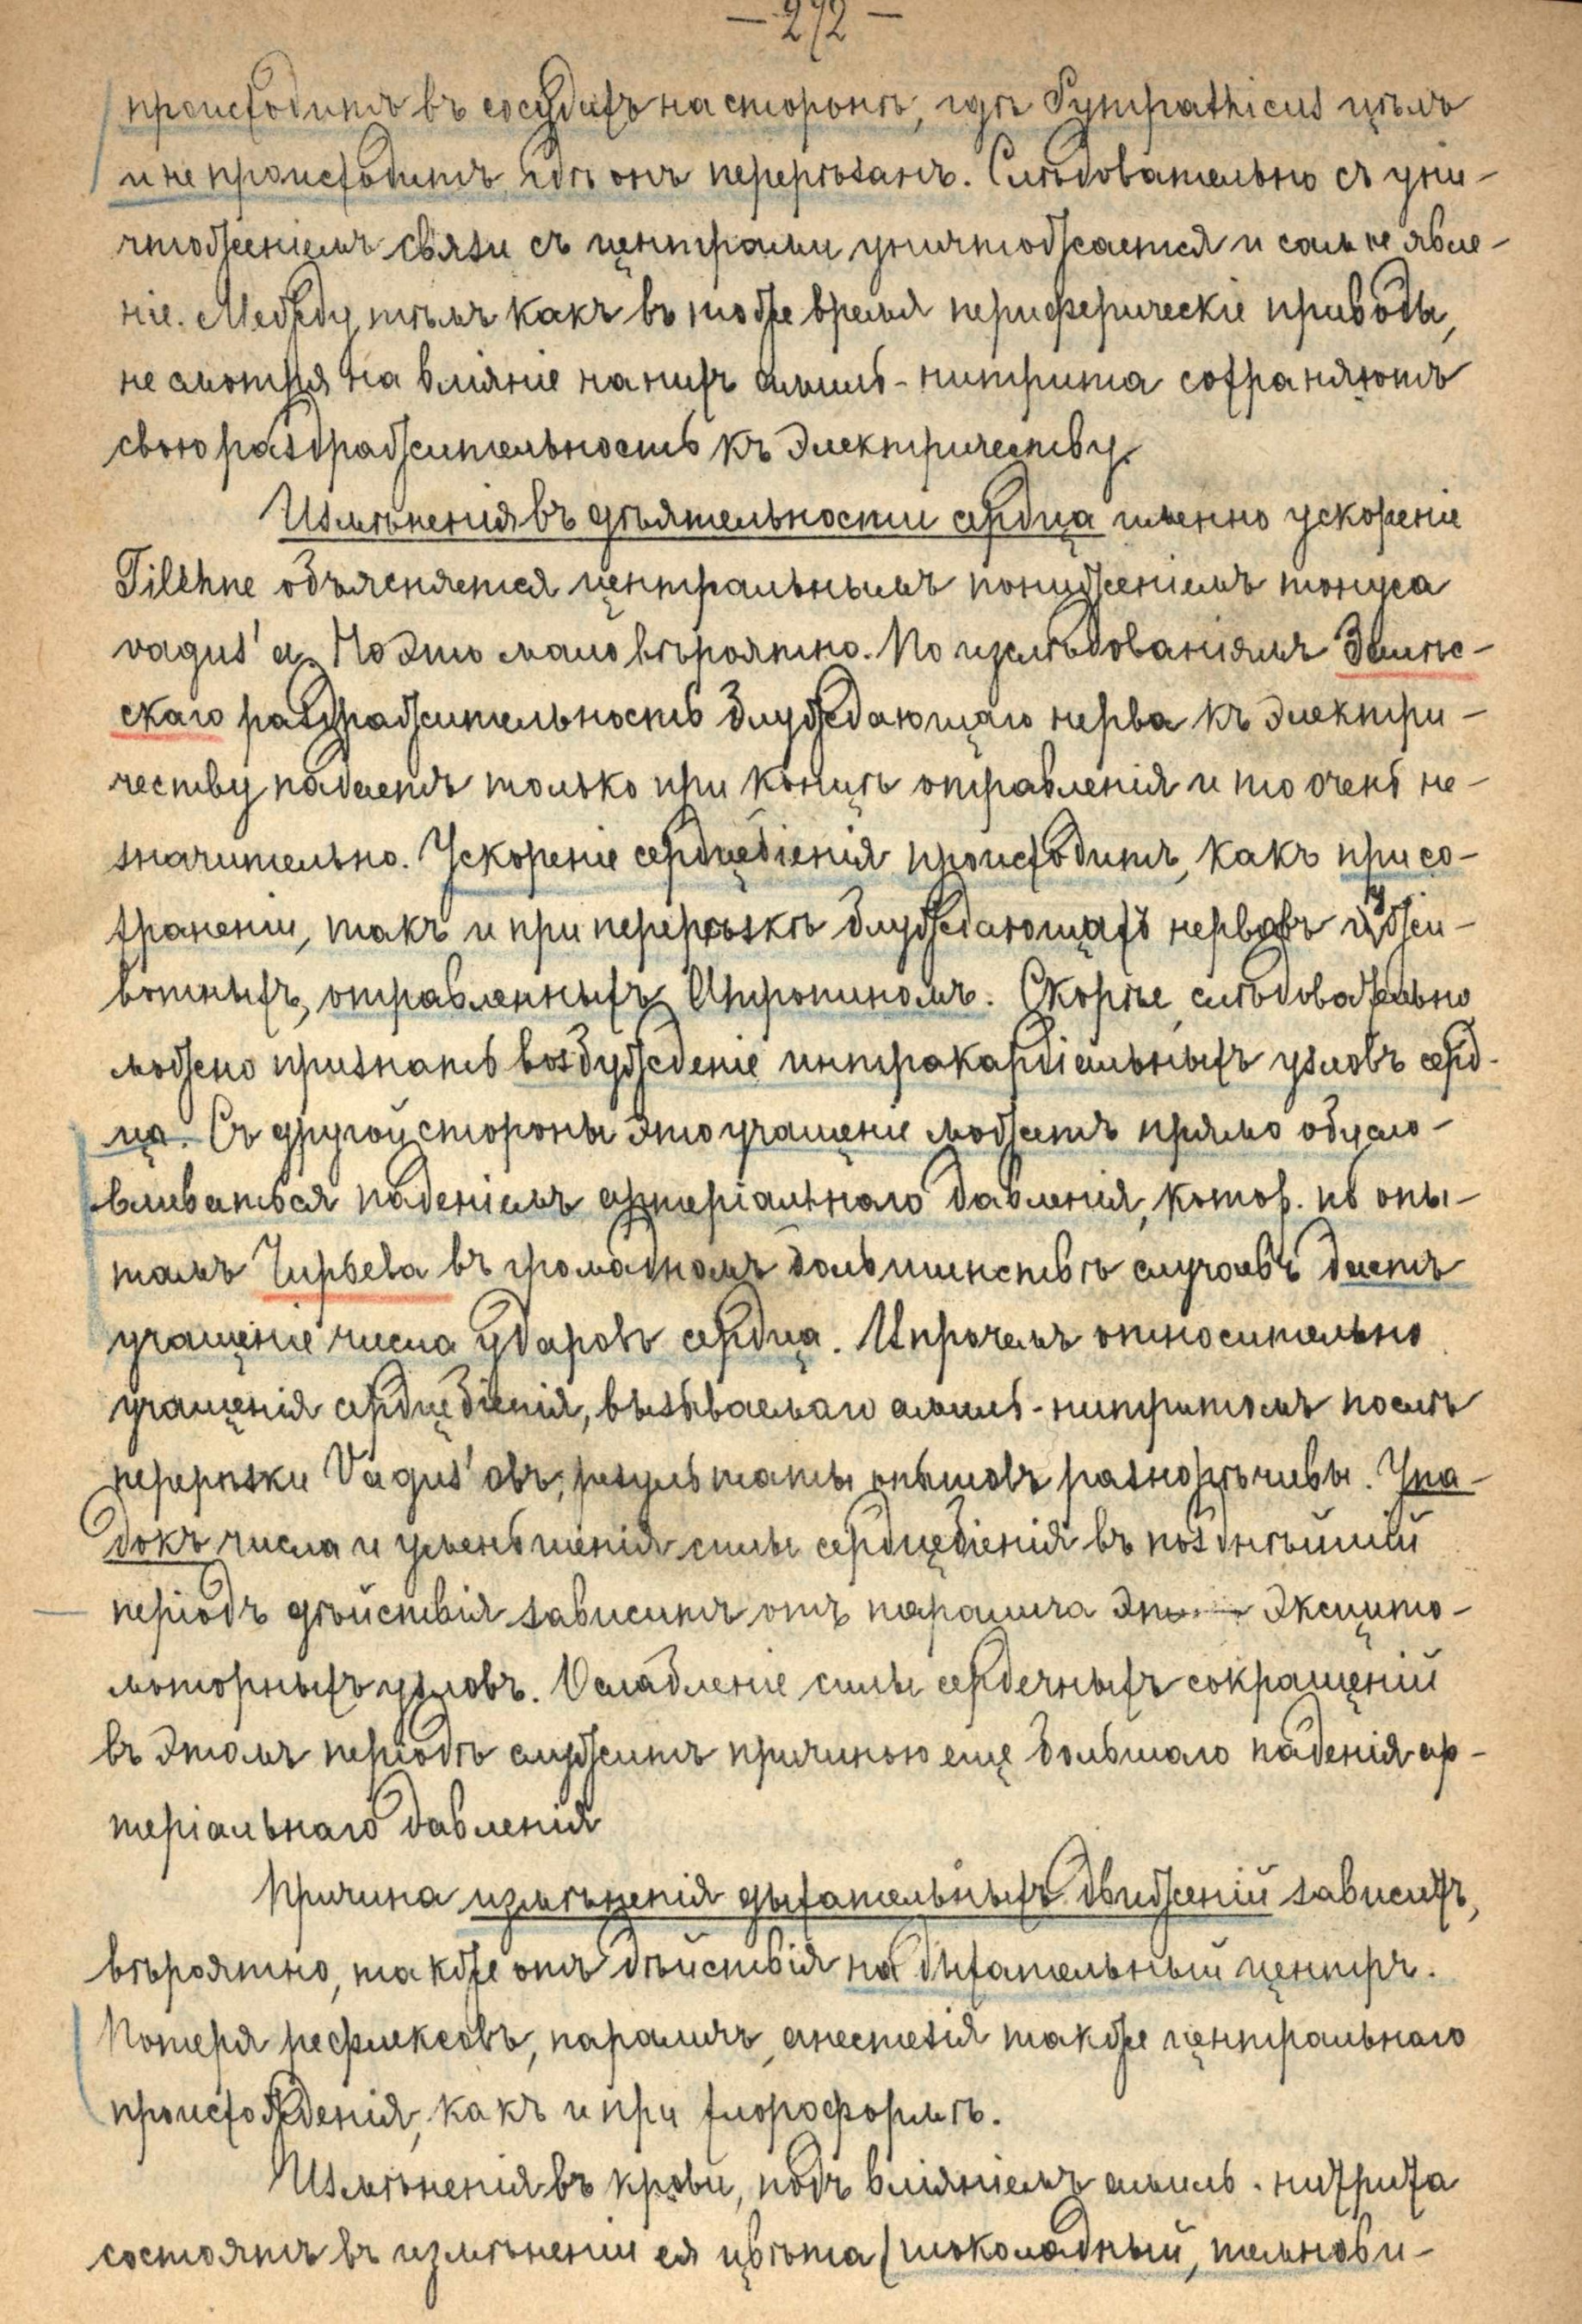 — 272 —
происходитъ въ сосудахъ на сторонѣ, гдѣ Sympathicus цѣлъ
и не происходитъ, гдѣ онъ перерѣзанъ. Слѣдовательно съ уни-
чтоженіемъ связи съ центрами уничтожается и самое явле-
ніе. Между тѣмъ какъ въ тоже время периферическіе приводы,
не смотря на вліяніе на нихъ амилъ-нитрита сохраняютъ
свою раздражительность къ электричеству.
Измѣненія въ дѣятельности сердца именно ускореніе
Filehne объясняется центральнымъ пониженіемъ тонуса
vagus'а. Но это мало вѣроятно. По изслѣдованіямъ
скаго раздражительность блуждающаго нерва къ электри-
честву падаетъ только при концѣ отравленія и то очень не-
значительно. Ускореніе сердцебіенія происходитъ, какъ при со-
храненіи, такъ и при перерѣзкѣ блуждающихъ нервовъ у жи-
вотныхъ, отравленныхъ Атропиномъ. Скорѣе, слѣдовательно
можно признать возбужденіе интракардіальныхъ узловъ серд-
ца. Съ другой стороны это учащеніе можетъ прямо обусло-
вливаться паденіемъ артеріальнаго давленія, котор. по опы-
тамъ Чирьева въ громадномъ большинствѣ случаевъ даетъ
учащеніе числа ударовъ сердца. Впрочемъ относительно
учащенія сердцебіенія, вызываемаго амилъ-нитритомъ послѣ
перерѣзки Vagus'овъ, результаты опытовъ разнорѣчивы. Упа-
докъ числа и уменьшенія силы сердцебіенія въ позднѣйшій
періодъ дѣйствія зависитъ отъ паралича эксцито-
моторныхъ узловъ. Ослабленіе силы сердечныхъ сокращеній
въ этомъ періодѣ служитъ причиною еще большаго паденія ар-
теріальнаго давленія
Причина измѣненія дыхательныхъ движеній зависитъ,
вѣроятно, также отъ дѣйствія на дыхательный центръ.
Потеря рефлексовъ, параличъ, анестезія также центральнаго
происхожденія, какъ и при хлороформѣ.
Измѣненія въ крови, подъ вліяніемъ амилъ-нитрита
состоятъ въ измѣненіи ея цвѣта (шоколадный, темнови-